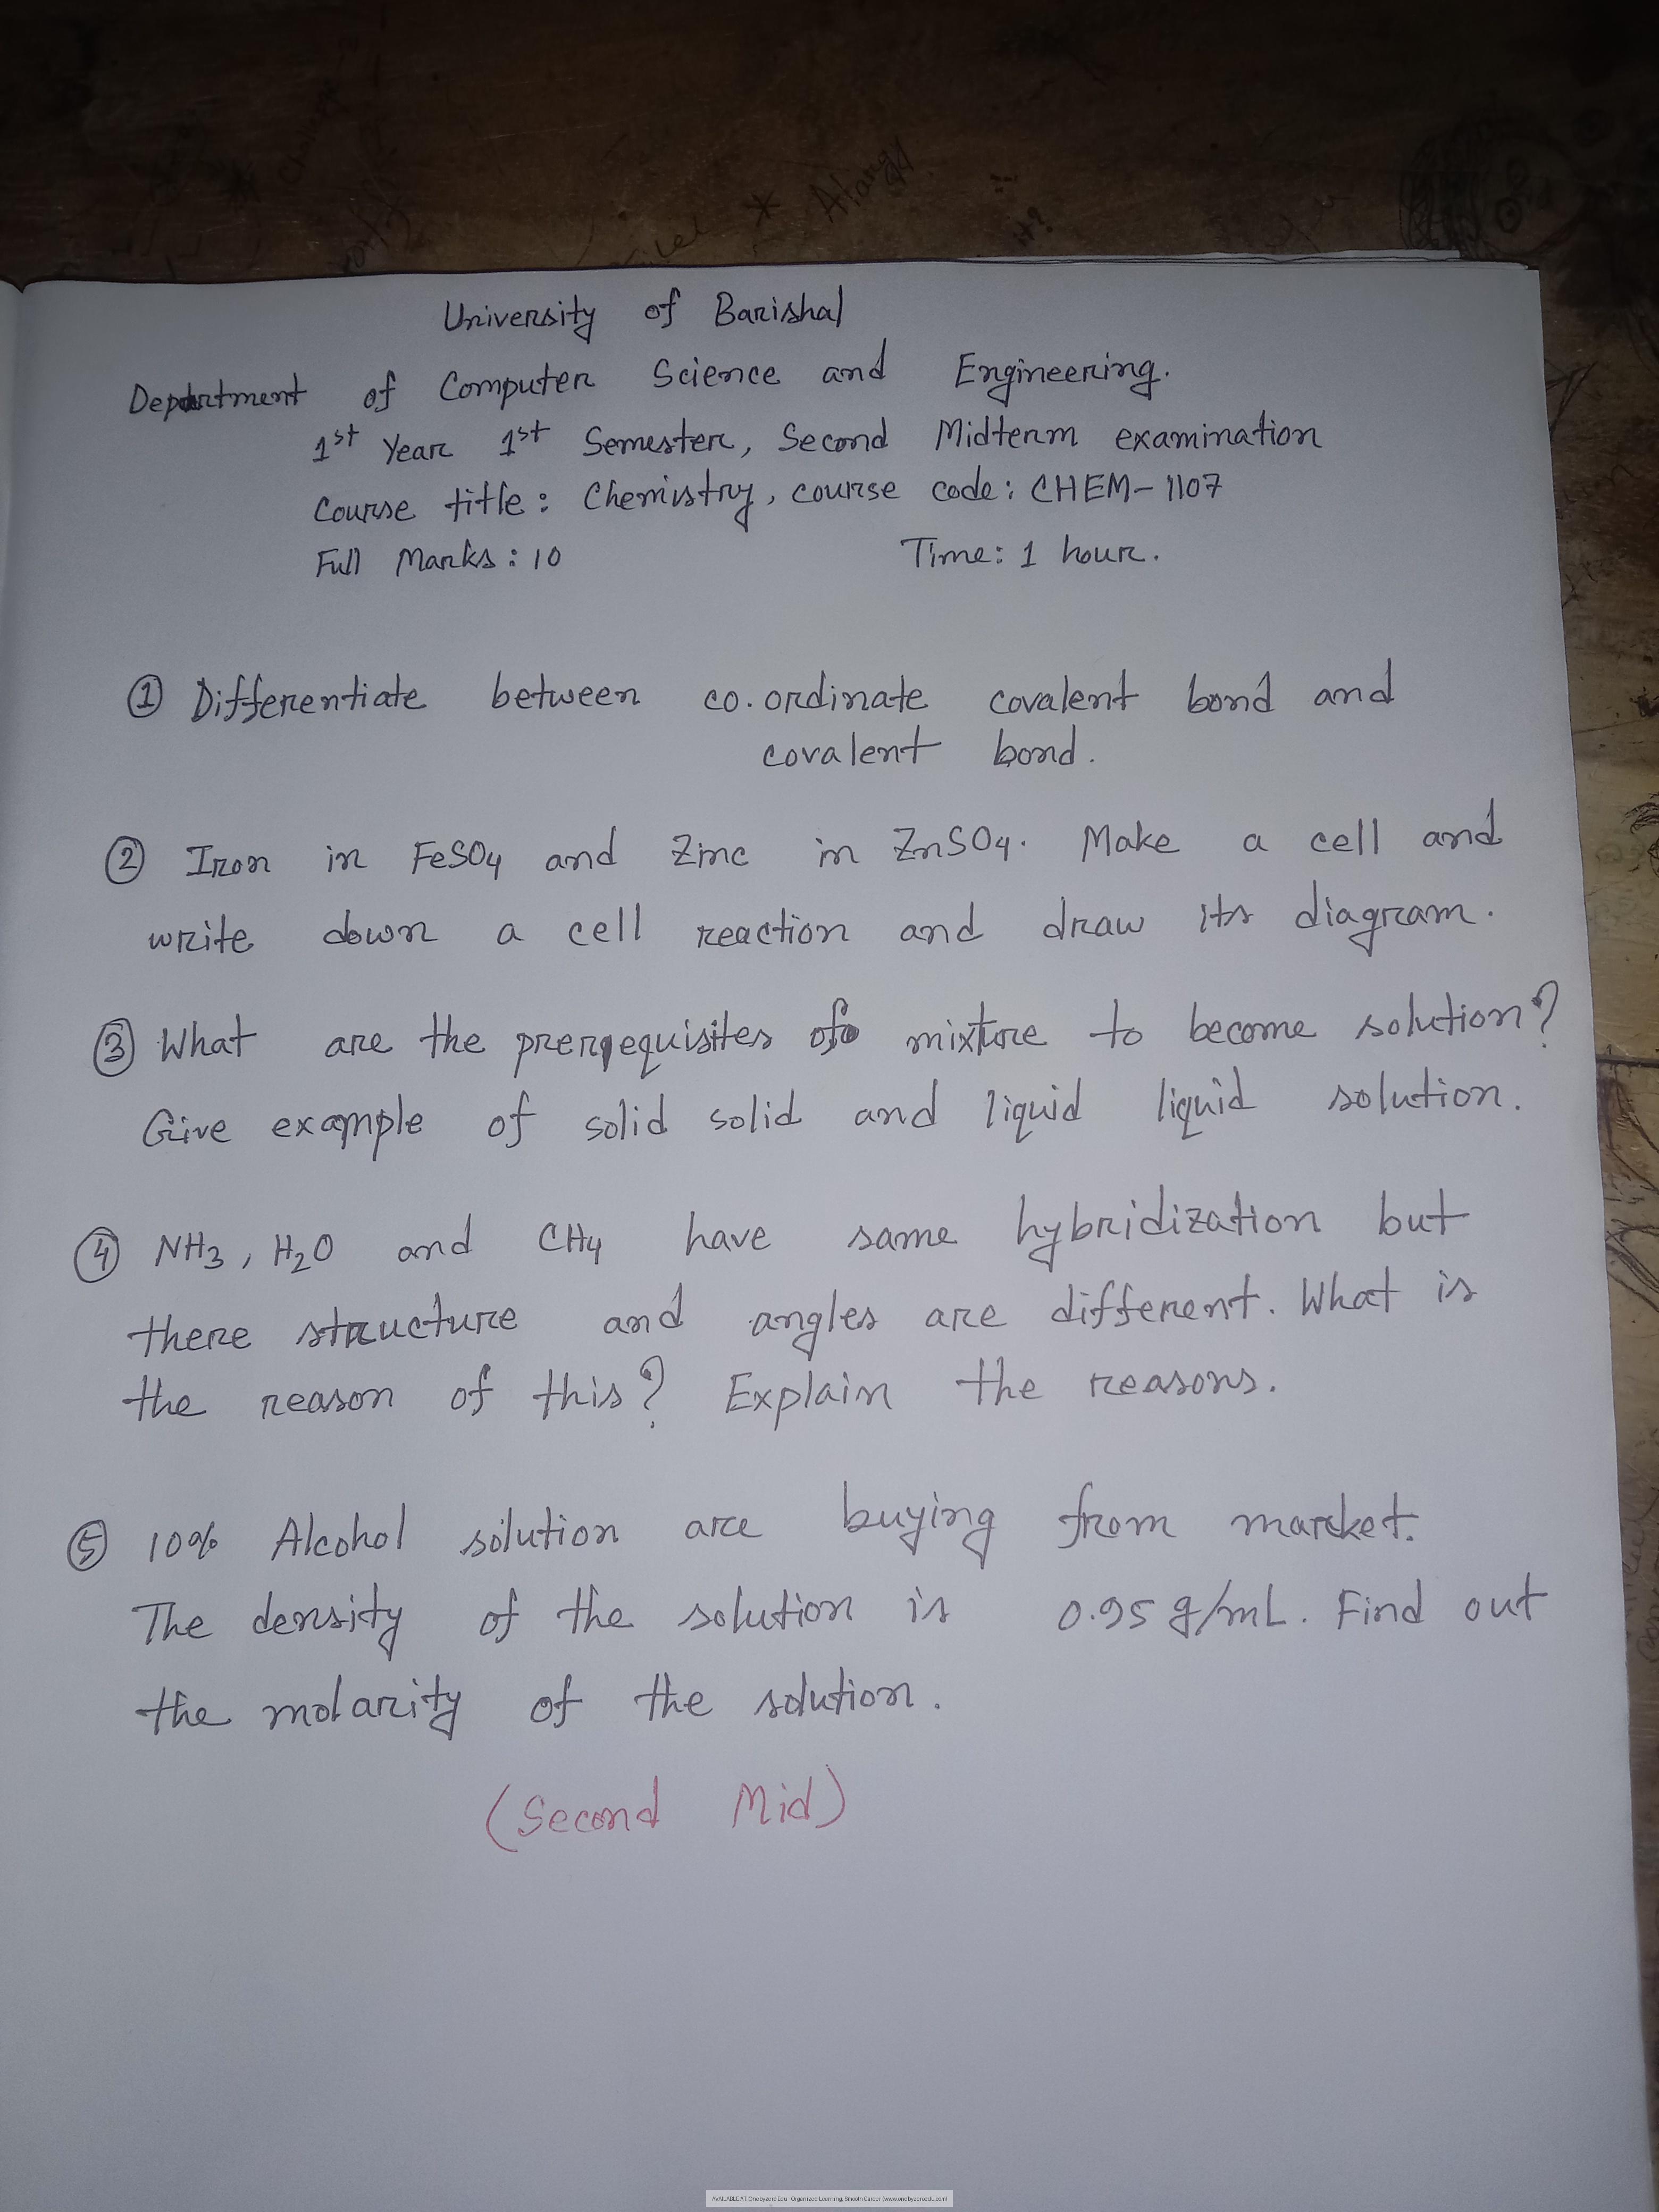 University of Barishal
Department of Computer Science and Engineering.
1st Year 1st Semester, Second Midterm examination
Course title: Chemistry, course code: CHEM-1107
Full Marks: 10 Time: 1 hour.
① Differentiate between co.ordinate covalent bond and
covalent bond.
② Iron in FeSO4 and Zinc in ZnSO4. Make a cell and
write down a cell reaction and draw its diagram.
③ What are the prerequisites of mixture to become solution?
Give example of solid solid and liquid liquid solution.
④ NH3, H2O and CH4 have same hybridization but
there structure and angles are different. What is
the reason of this? Explain the reasons.
⑤ 10% Alcohol solution are buying from market.
The density of the solution is 0.95 g/mL. Find out
the molarity of the solution.
(Second Mid)
AVAILABLE AT: Onebyzero Edu - Organized Learning, Smooth Career (www.onebyzeroedu.com)